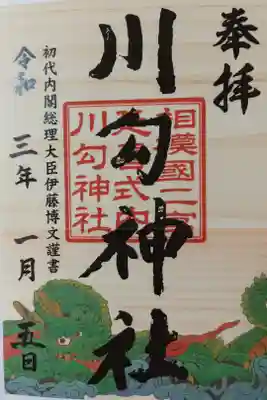 奉拝
川勾神社
相模國二宮
延喜式内
川勾神社
初代内閣総理大臣伊藤博文謹書
令和三年一月五日